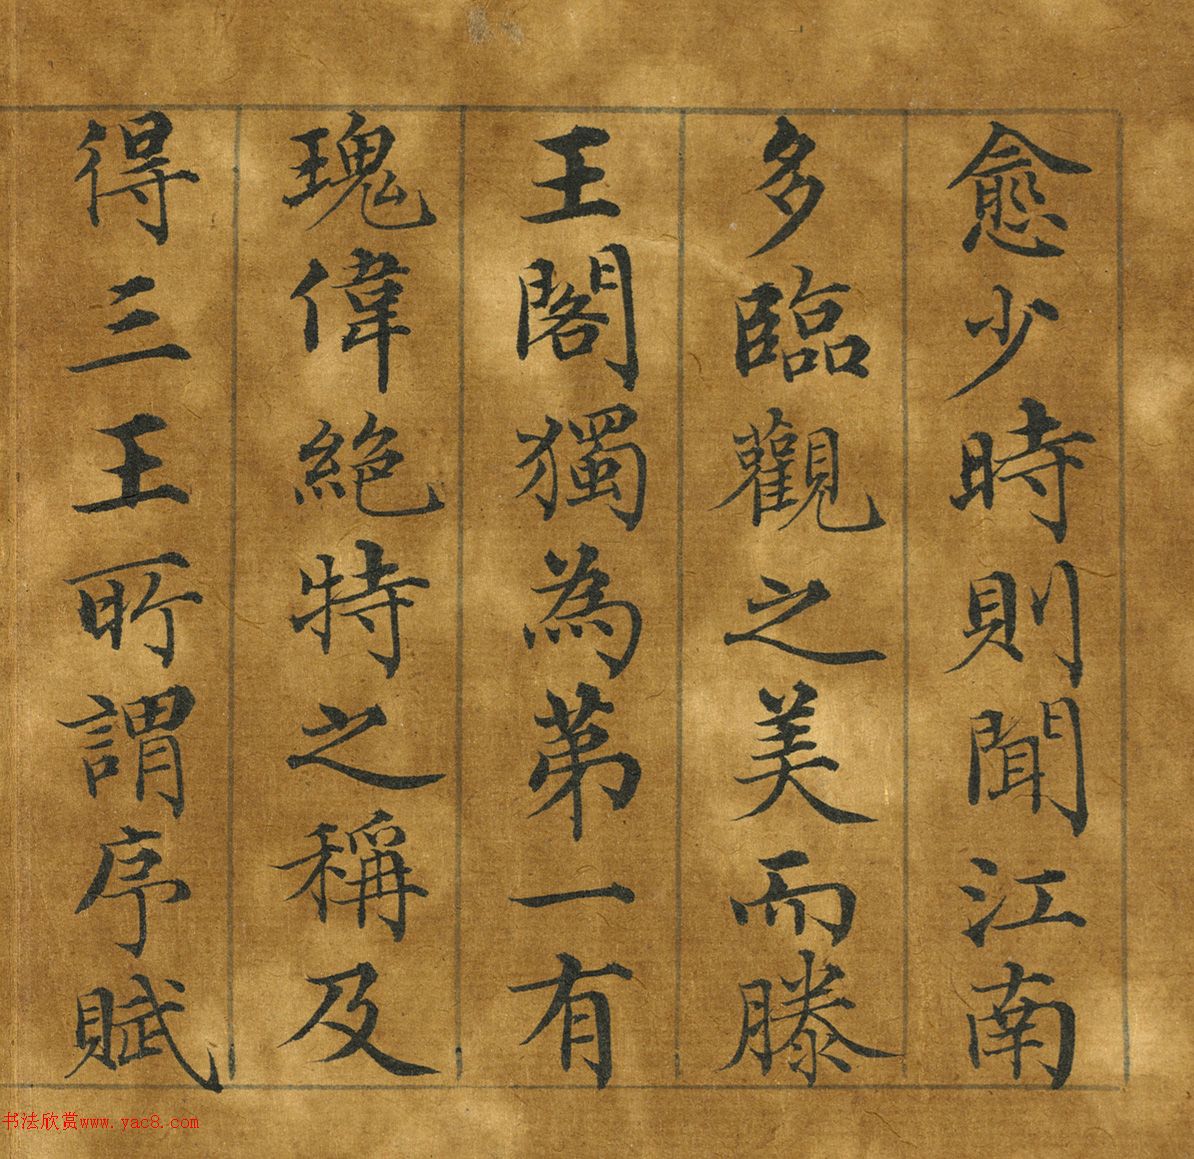 愈少時則聞江南
多臨觀之美而滕
王閣獨為第一有
瑰偉絕特之稱及
得三王所謂序賦
书法欣赏www.yac8.com